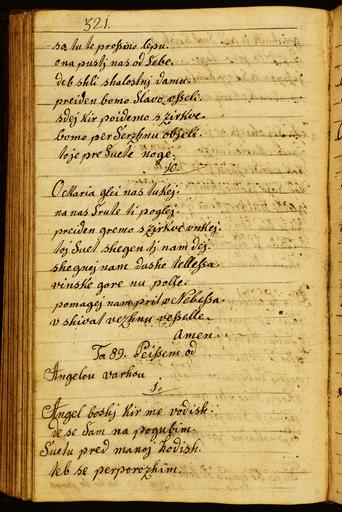 321.
sa tu te prossimo lepu.
ona pusti nas od Sebe.
deb shli shalostnj damu.
preiden bomo Slavo vsseli.
sdej kir poidemo s zirkve.
bomo per Serzhnu objeli
toje pre Suete noge.
10.
O Maria glei nas tukej.
na nas Srute ti poglej.
preiden gremo s zirkve vnkej.
toj Suet shegen tj nam dej.
shegnej nam dusho tellessa.
vinske gore nu polle.
pomagej nam prit v Nebessa.
v shivat vezhnu vesselle.
Amen.
Ta 89. Peissem od
Angelou varhou
1.
Angel boshj kir me vodish.
de se Sam na pogubim.
Suetu pred manoj hodish.
deb se perporozhim.